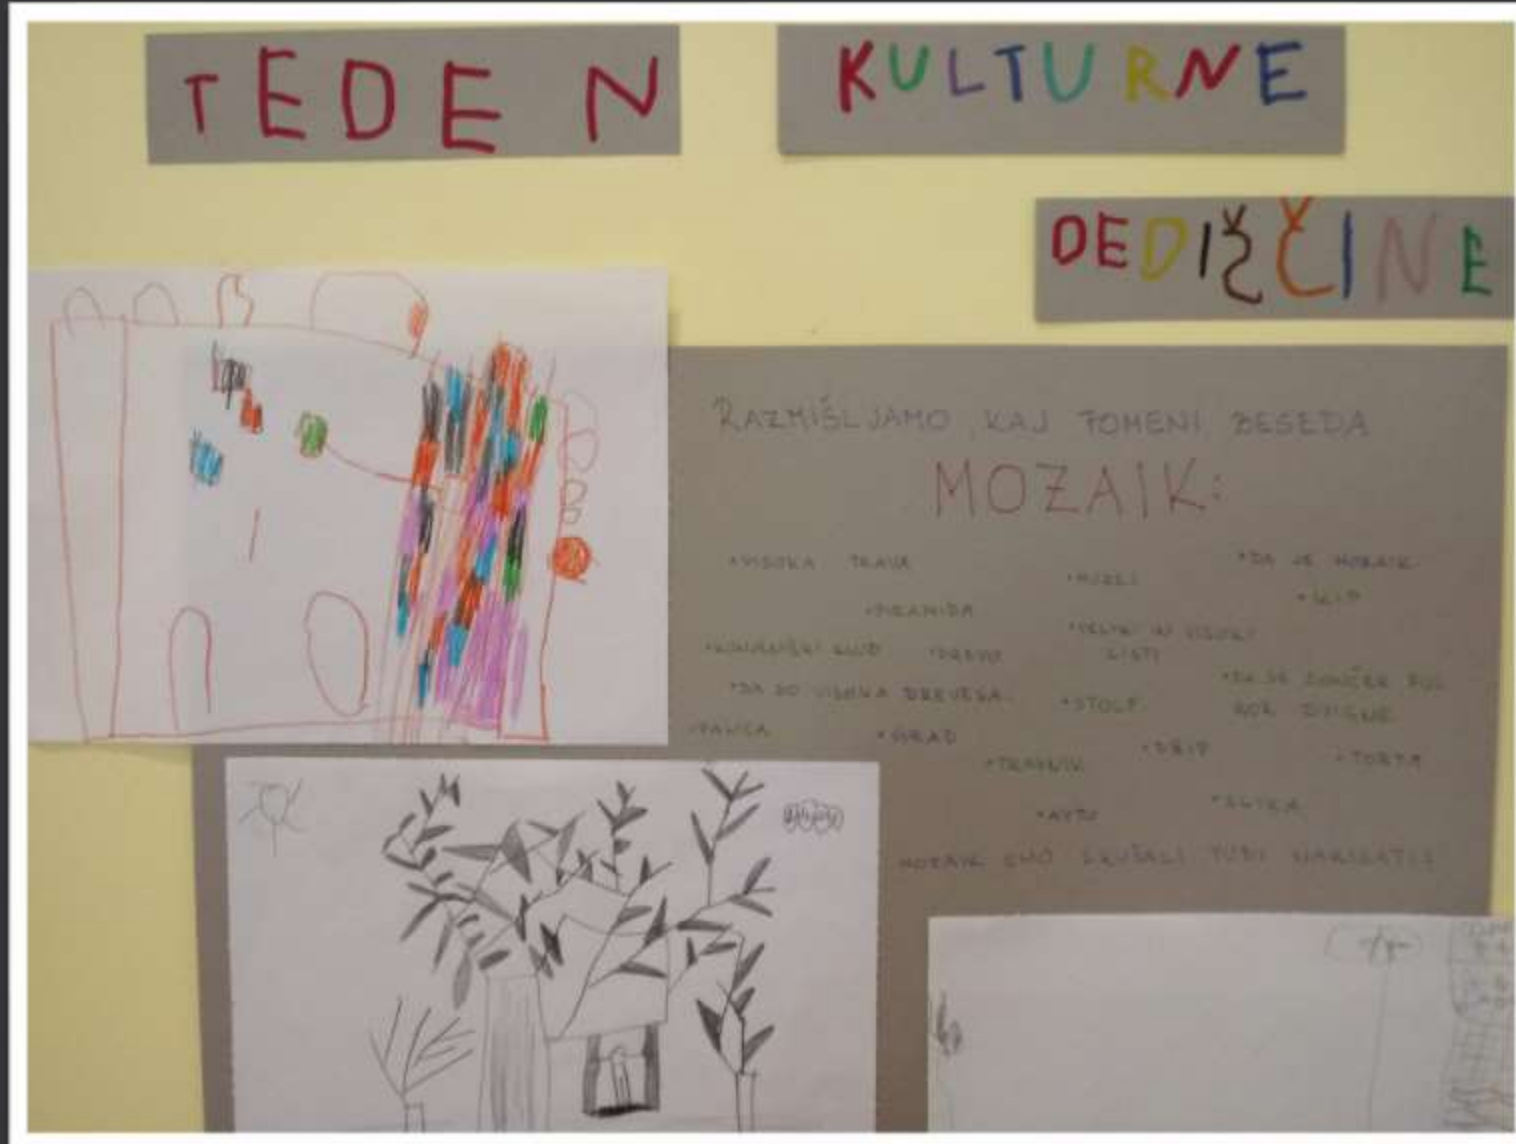 TEDEN KULTURNE
DEDIŠČINE
RAZMIŠLJAMO, KAJ POMENI BESEDA
MOZAIK:
•VISOKA TRAVA
•MUZEJ
•DA JE MOZAIK
•PIRAMIDA
•KIP
•VELIKI IN VISOKI
LISTI
•DREVO
•DA SO VISOKA DREVESA
•STOLP
•PALICA
•GRAD
•TRAVNIK
•TORTA
•AVTO
•SLIKA
MOZAIK SMO SKUŠALI TUDI NARISATI: